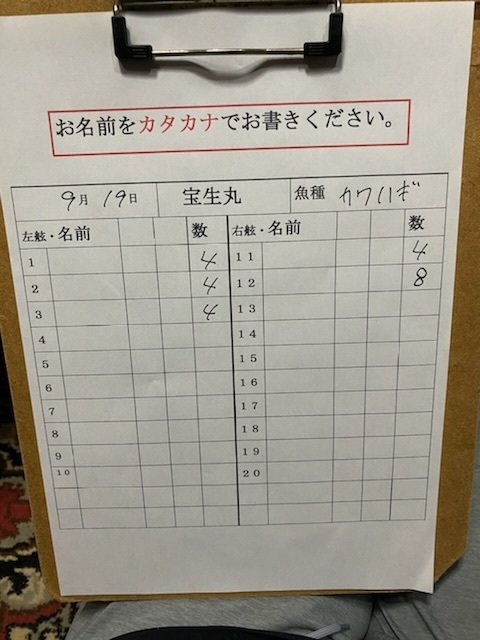 お名前をカタカナでお書きください。
9月 19日 宝生丸 魚種 カワハギ
左舷・名前 数 右舷・名前 数
1 4 11 4
2 4 12 8
3 4 13
4 14
5 15
6 16
7 17
8 18
9 19
10 20